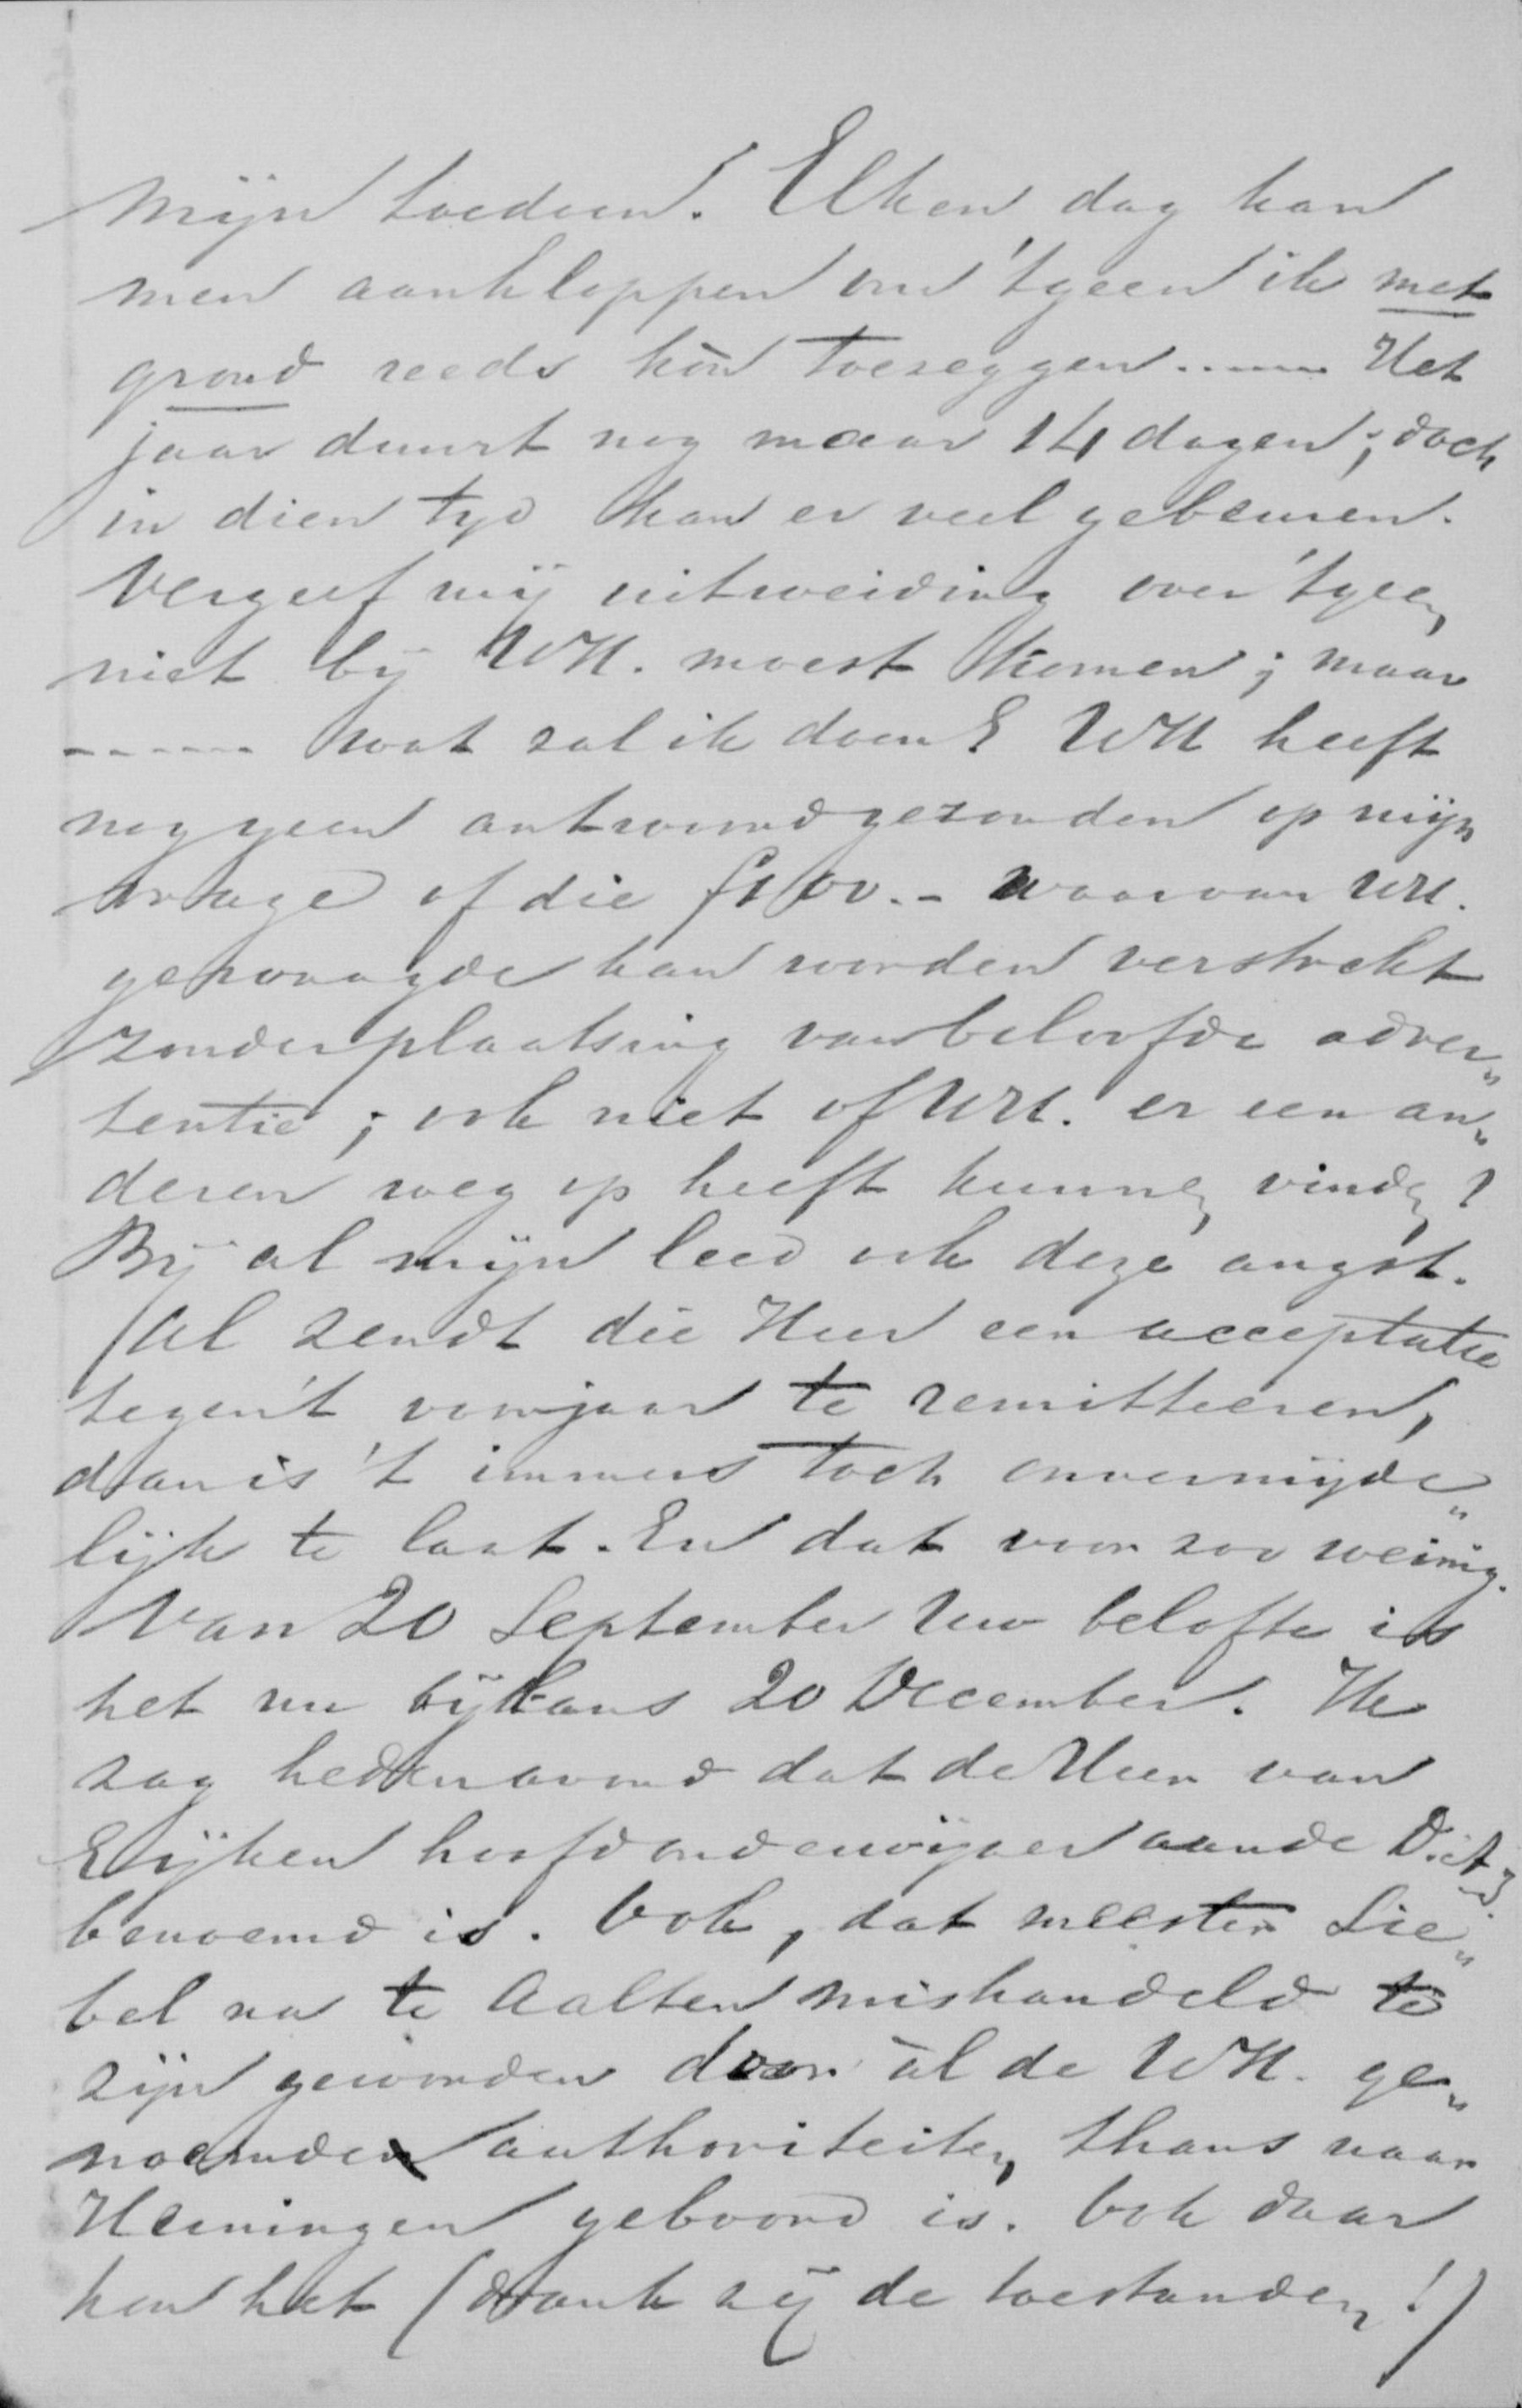 mijn toedoen. Elken dag kan
men aankloppen om 'tgeen ik met
grond reeds kòn toezeggen...... Het
jaar duurt nog maar 14 dagen; doch
in dien tyd kan er veel gebeuren.
Vergeef mij uitweiding over 'tgeen
niet bij WH. moest komen; maar
...... wat zal ik doen? WH heeft
nog geen antwoord gezonden op mijn
vrage of die f100.- waarvan WH.
gewaagde kan worden verstrekt
zonder plaatsing van beloofde adver„
tentie; ook niet of WH. er een an„
deren weg op heeft kunnen vinden?
Bij al mijn leed ook deze angst.
Al zendt die Heer een acceptatie
tegen 't voorjaar te remitteeren,
dan is 't immers toch onvermijde„
lijk te laat. En dat voor zoo weinig.
Van 20 September Uw belofte is
het nu bijkans 20 December. Ik
zag hedenavond dat de Heer van
Eijken hoofdonderwijzer aan de
benoemd is. Ook, dat meester Sie„
bel na te Aalten mishandeld te
zijn geworden door àl de WH. ge„
noemde authoriteiten, thans naar
Heiningen geboord is. Ook daar
kan het (dank zij de toestanden!)